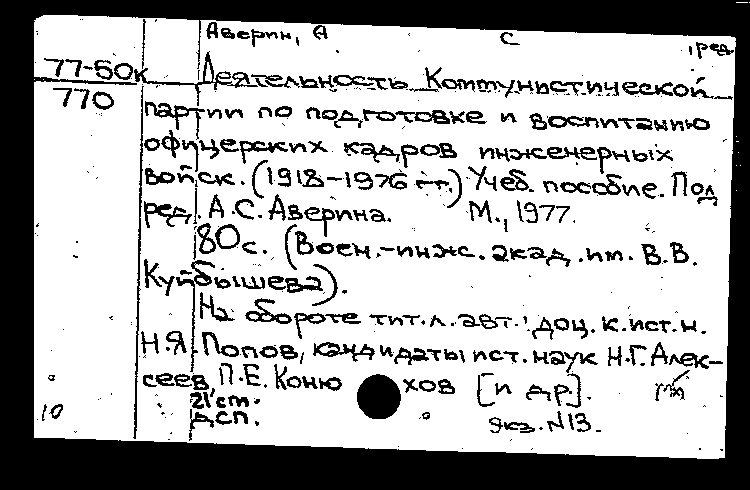 Аверин, А С , ред
77-50к Деятельность Коммунистической
770 партии по подготовке и воспитанию
офицерских кадров инженерных
войск. (1918-1976 гг.) Учеб. пособие. Под
ред. А.С. Аверина. М., 1977.
80с. (Воен.-инж. акад. им. В.В.
Куйбышева).
На обороте тит.л. авт.: доц. к.ист.н.
Н.Я. Попов, кандидаты ист. наук Н.Г. Алек-
сеев, П.Е. Коню хов [и др.].
21см.
10 дсп. Экз. N13.